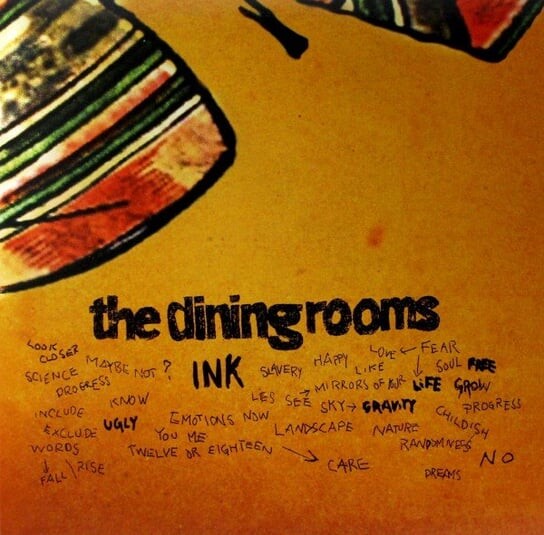 the dining rooms
LOOK CLOSER
MAYBE NOT?
INK
SLAVERY HAPPY LIKE
LOVE ← FEAR
SOUL FREE
SCIENCE
PROGRESS
MIRRORS OF YOUR LIFE GROW
KNOW
LES SEE SKY → GRAVITY
PROGRESS
INCLUDE
EXCLUDE UGLY
EMOTIONS NOW
LANDSCAPE NATURE
CHILDISH
RANDOMNESS
WORDS
YOU ME
TWELVE OR EIGHTEEN → CARE
NO
FALL \ RISE
DREAMS